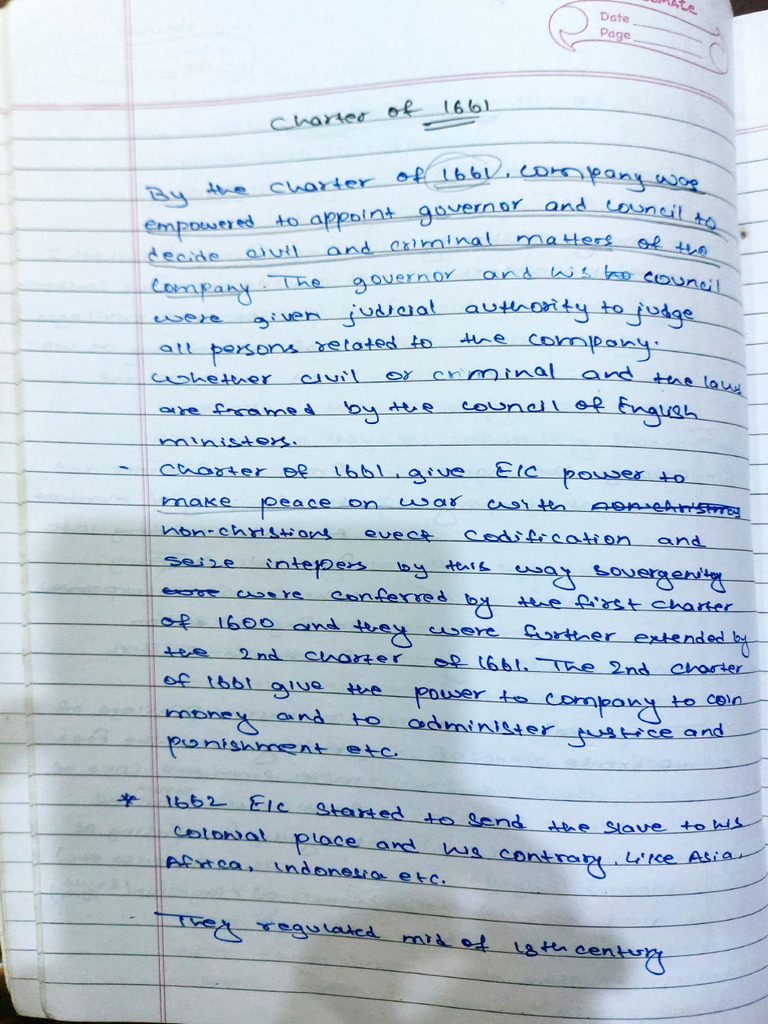 Date
Page
Charter of 1661
By the charter of 1661. company was
empowered to appoint governor and council to
decide civil and criminal matters of the
company. The governor and his council
were given judicial authority to judge
all persons related to the company.
whether civil or criminal and the laws
are framed by the council of English
ministers.
- Charter of 1661. give EIC power to
make peace on war with
non-christians evect codification and
seize intepers by this way sovergenity
were conferred by the first charter
of 1600 and they were further extended by
the 2nd charter of 1661. The 2nd charter
of 1661 give the power to company to coin
money and to administer justice and
punishment etc.
* 1662 EIC started to send the slave to his
colonial place and his contrary. Like Asia,
Africa, Indonesia etc.
- They regulated mid of 18th century